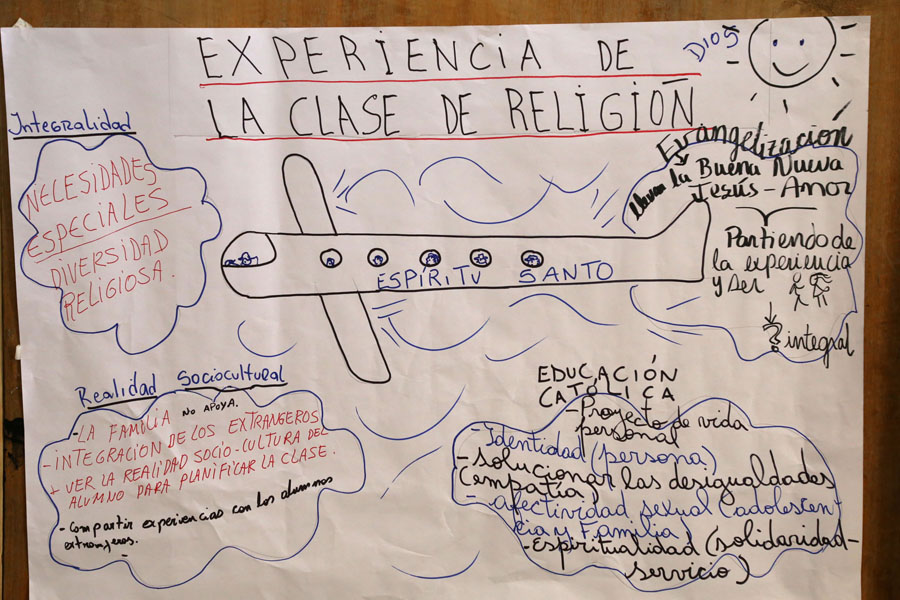 EXPERIENCIA DE
LA CLASE DE RELIGIÓN
DIOS
Integralidad
NECESIDADES
ESPECIALES
DIVERSIDAD
RELIGIOSA.
Evangelización
llevan la Buena Nueva
Jesús - Amor
Partiendo de
la experiencia
y ser
integral
ESPÍRITU SANTO
Realidad Sociocultural
- LA FAMILIA NO APOYA.
- INTEGRACIÓN DE LOS EXTRANGEROS
+ VER LA REALIDAD SOCIO-CULTURA DEL
ALUMNO PARA PLANIFICAR LA CLASE.
- Compartir experiencias con los alumnos
extranjeros.
EDUCACIÓN
CATÓLICA
- Proyecto de vida
personal
- Identidad (persona)
- solucionar las desigualdades
(empatía)
- afectividad sexual (adolescen-
cia y Familia)
- Espiritualidad (solidaridad-
servicio)